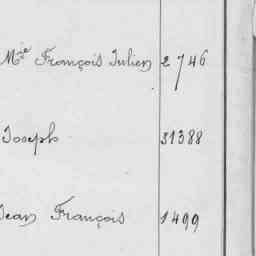 Mie François Julien 2746
Joseph 31388
Jean François 1499